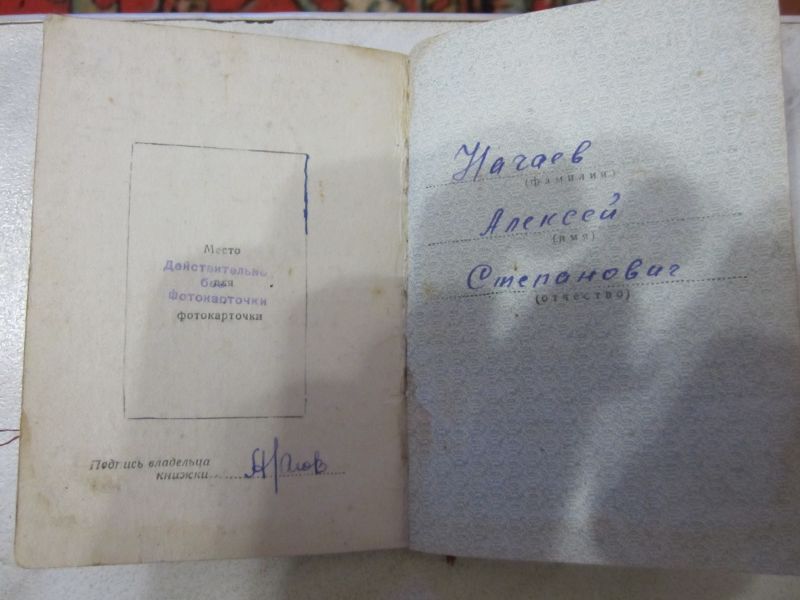 Место
Действительно
без
для
фотокарточки
фотокарточки
Подпись владельца
книжки
Нагаев
(фамилия)
Алексей
(имя)
Степанович
(отчество)